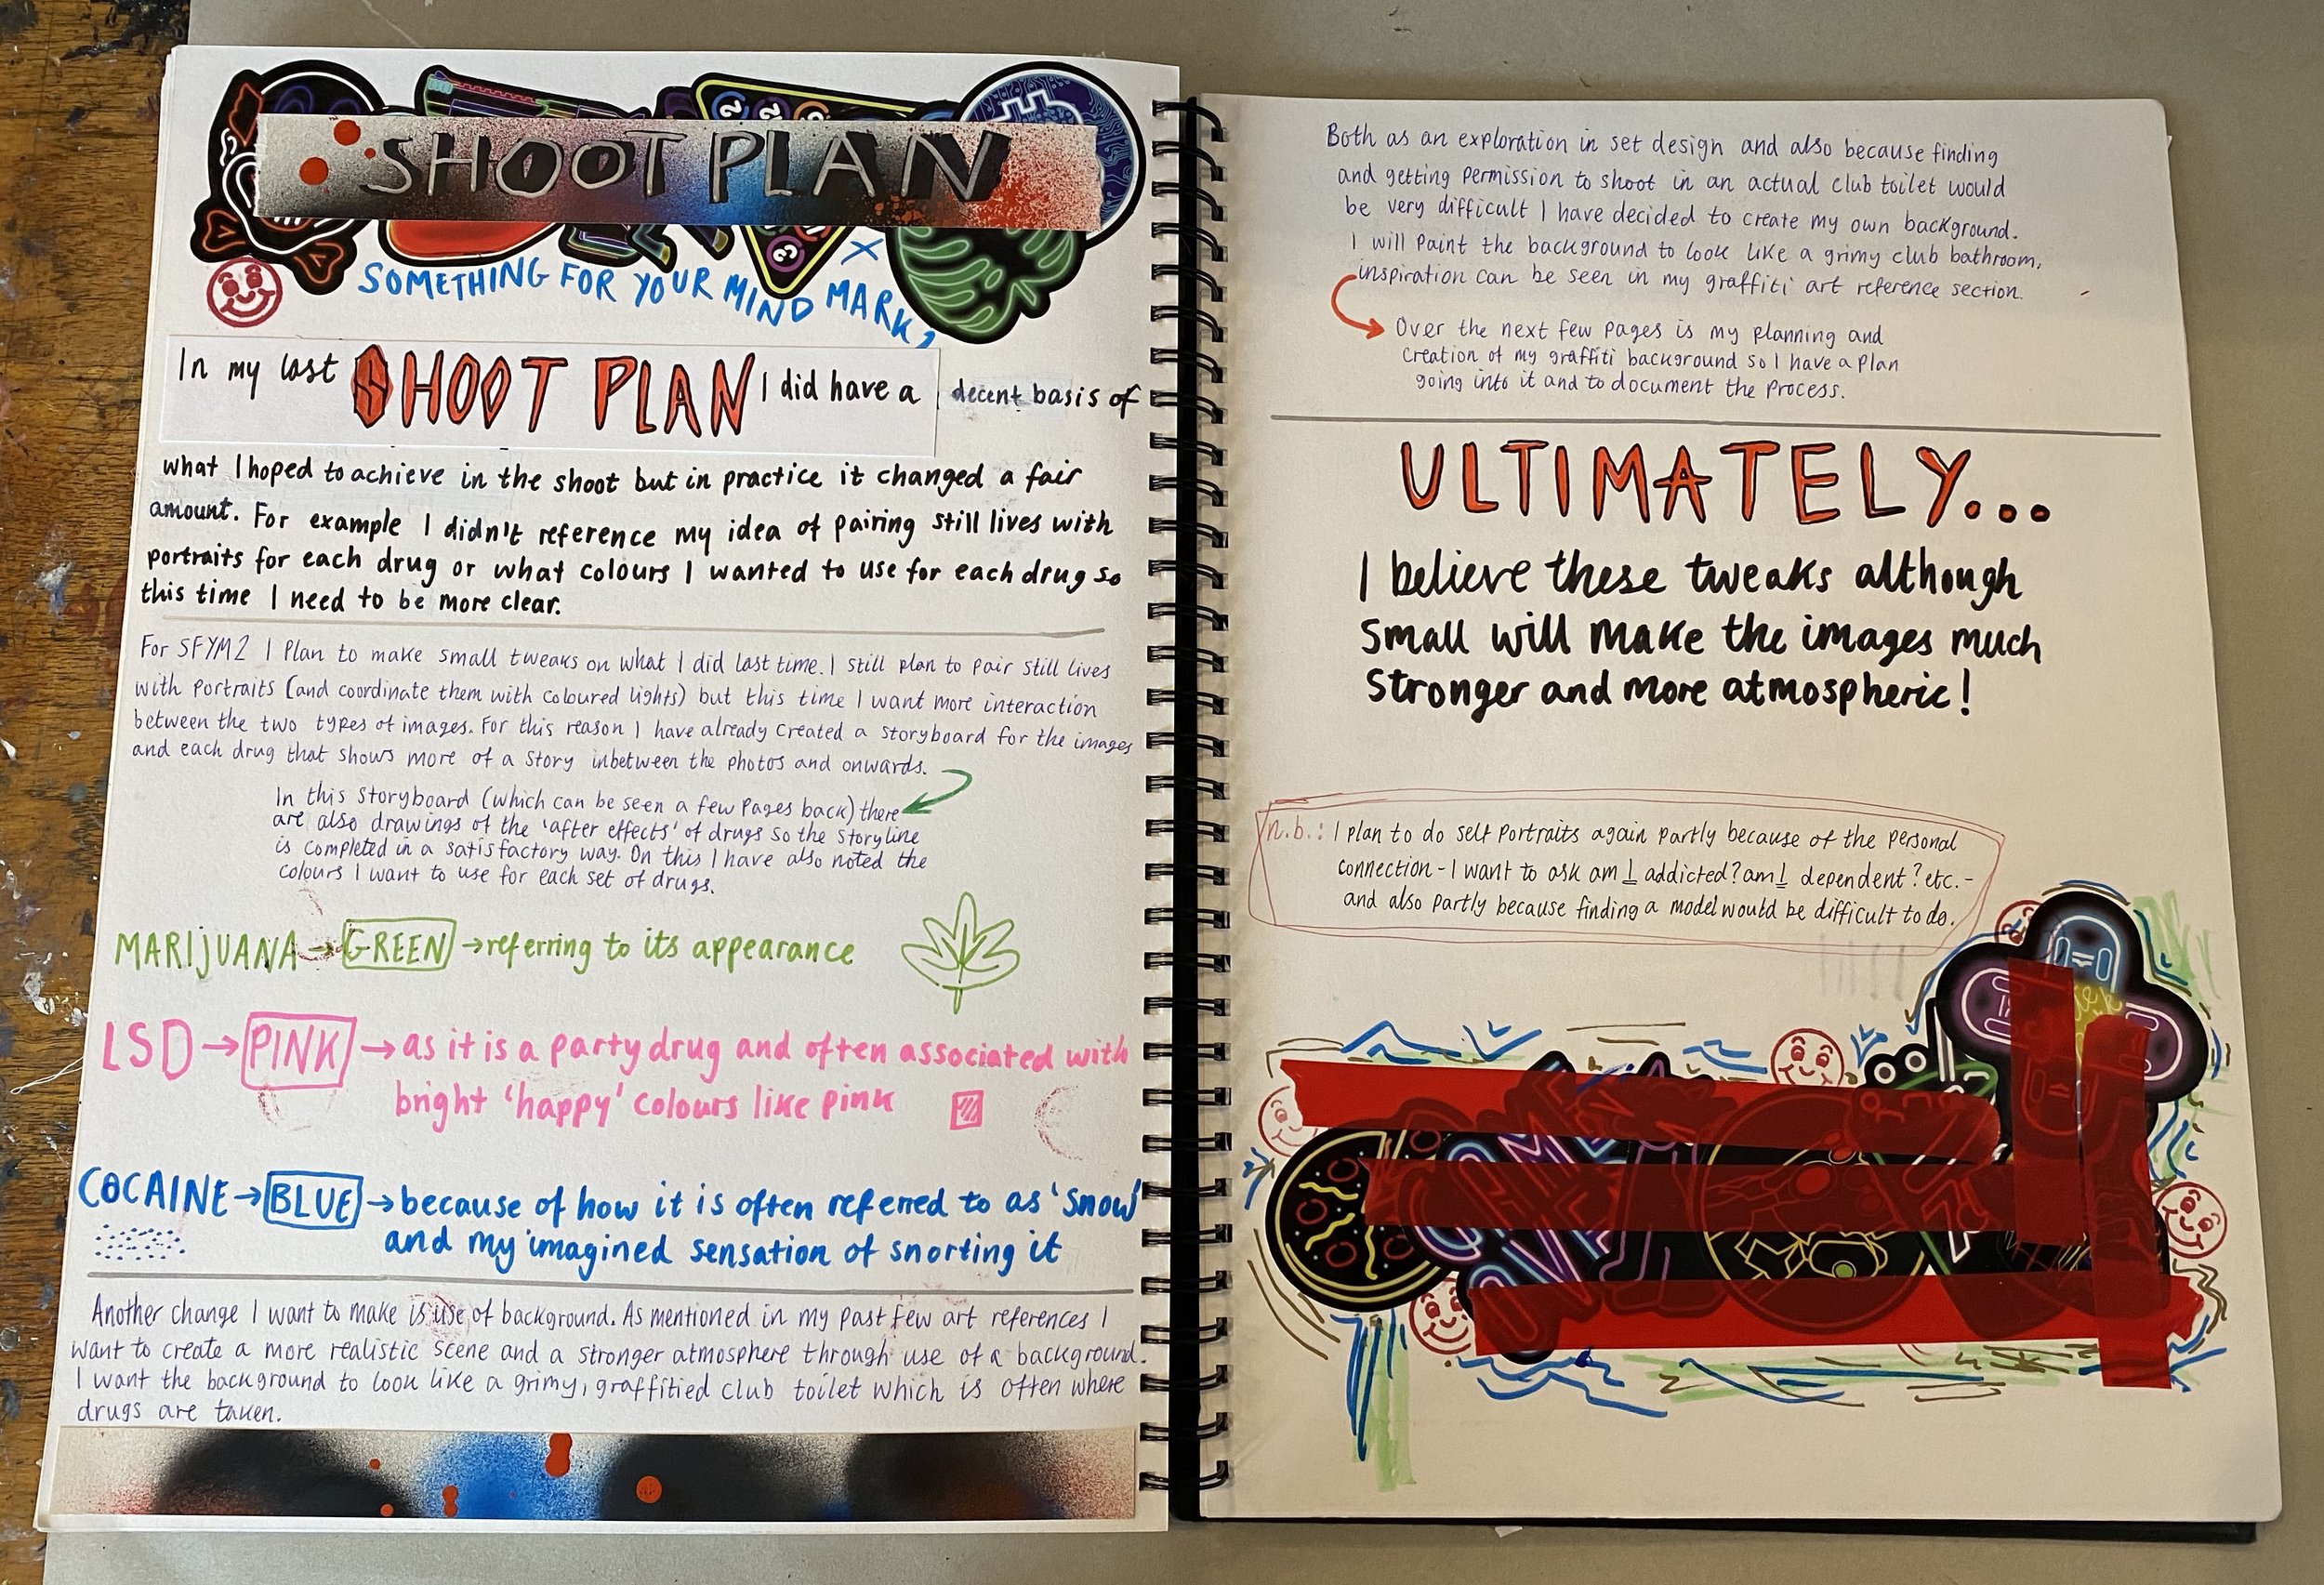 SHOOT PLAN
SOMETHING FOR YOUR MIND MARK 2
In my last SHOOT PLAN I did have a decent basis of
what I hoped to achieve in the shoot but in practice it changed a fair
amount. For example I didn't reference my idea of pairing still lives with
portraits for each drug or what colours I wanted to use for each drug so
this time I need to be more clear.
For SFYM2 I plan to make small tweaks on what I did last time. I still plan to pair still lives
with portraits (and coordinate them with coloured lights) but this time I want more interaction
between the two types of images. For this reason I have already created a storyboard for the images
and each drug that shows more of a story inbetween the photos and onwards.
In this storyboard (which can be seen a few pages back) there
are also drawings of the 'after effects' of drugs so the storyline
is completed in a satisfactory way. On this I have also noted the
colours I want to use for each set of drugs.
MARIJUANA → GREEN → referring to its appearance
LSD → PINK → as it is a party drug and often associated with
bright 'happy' colours like pink
COCAINE → BLUE → because of how it is often referred to as 'snow'
and my imagined sensation of snorting it
Another change I want to make is use of background. As mentioned in my past few art references I
want to create a more realistic scene and a stronger atmosphere through use of a background.
I want the background to look like a grimy, graffitied club toilet which is often where
drugs are taken.
Both as an exploration in set design and also because finding
and getting permission to shoot in an actual club toilet would
be very difficult I have decided to create my own background.
I will paint the background to look like a grimy club bathroom,
inspiration can be seen in my graffiti art reference section.
Over the next few pages is my planning and
creation of my graffiti background so I have a plan
going into it and to document the process.
ULTIMATELY...
I believe these tweaks although
small will make the images much
stronger and more atmospheric!
n.b.: I plan to do self portraits again partly because of the personal
connection - I want to ask am I addicted? am I dependent? etc. -
and also partly because finding a model would be difficult to do.